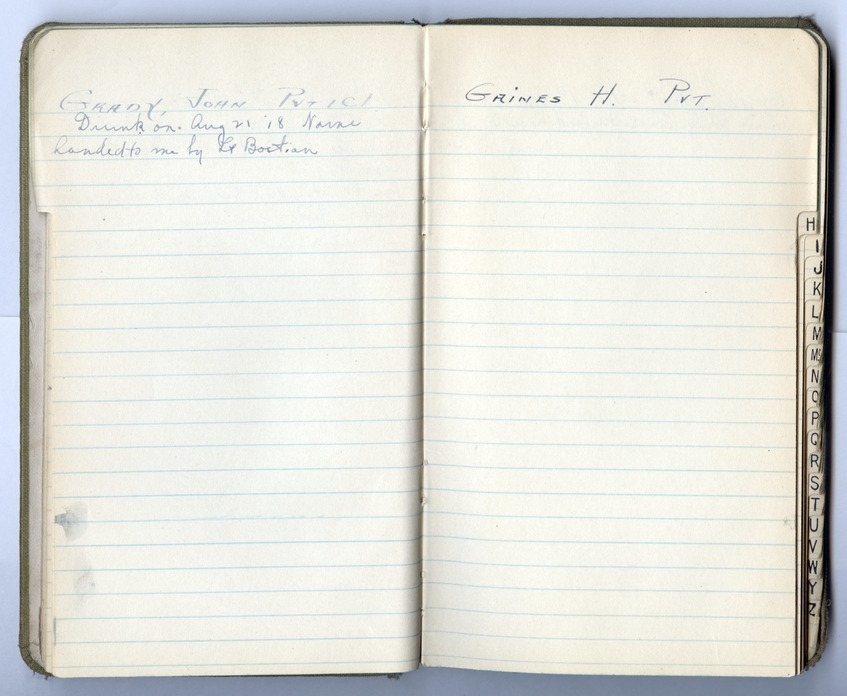 GRADY, JOHN PVT 1CL
Drunk on Aug 21 '18 Name
handed to me by Lt Bostian
GAINES H. PVT.
H
I
J
K
L
M
Mc
N
O
P
Q
R
S
T
U
V
W
Y
Z